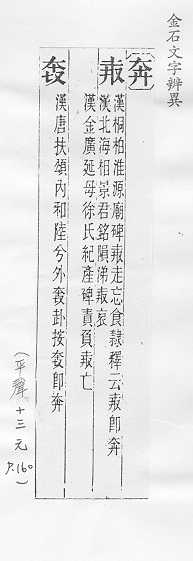 金石文字辨異
奔
漢桐柏淮源廟碑走忘食隸釋云即奔
漢北海相景君銘隕涕哀
漢金廣延母徐氏紀產碑責負亡
漢唐扶頌內和陸兮外赴按即奔
(平聲 十三元 P.160)